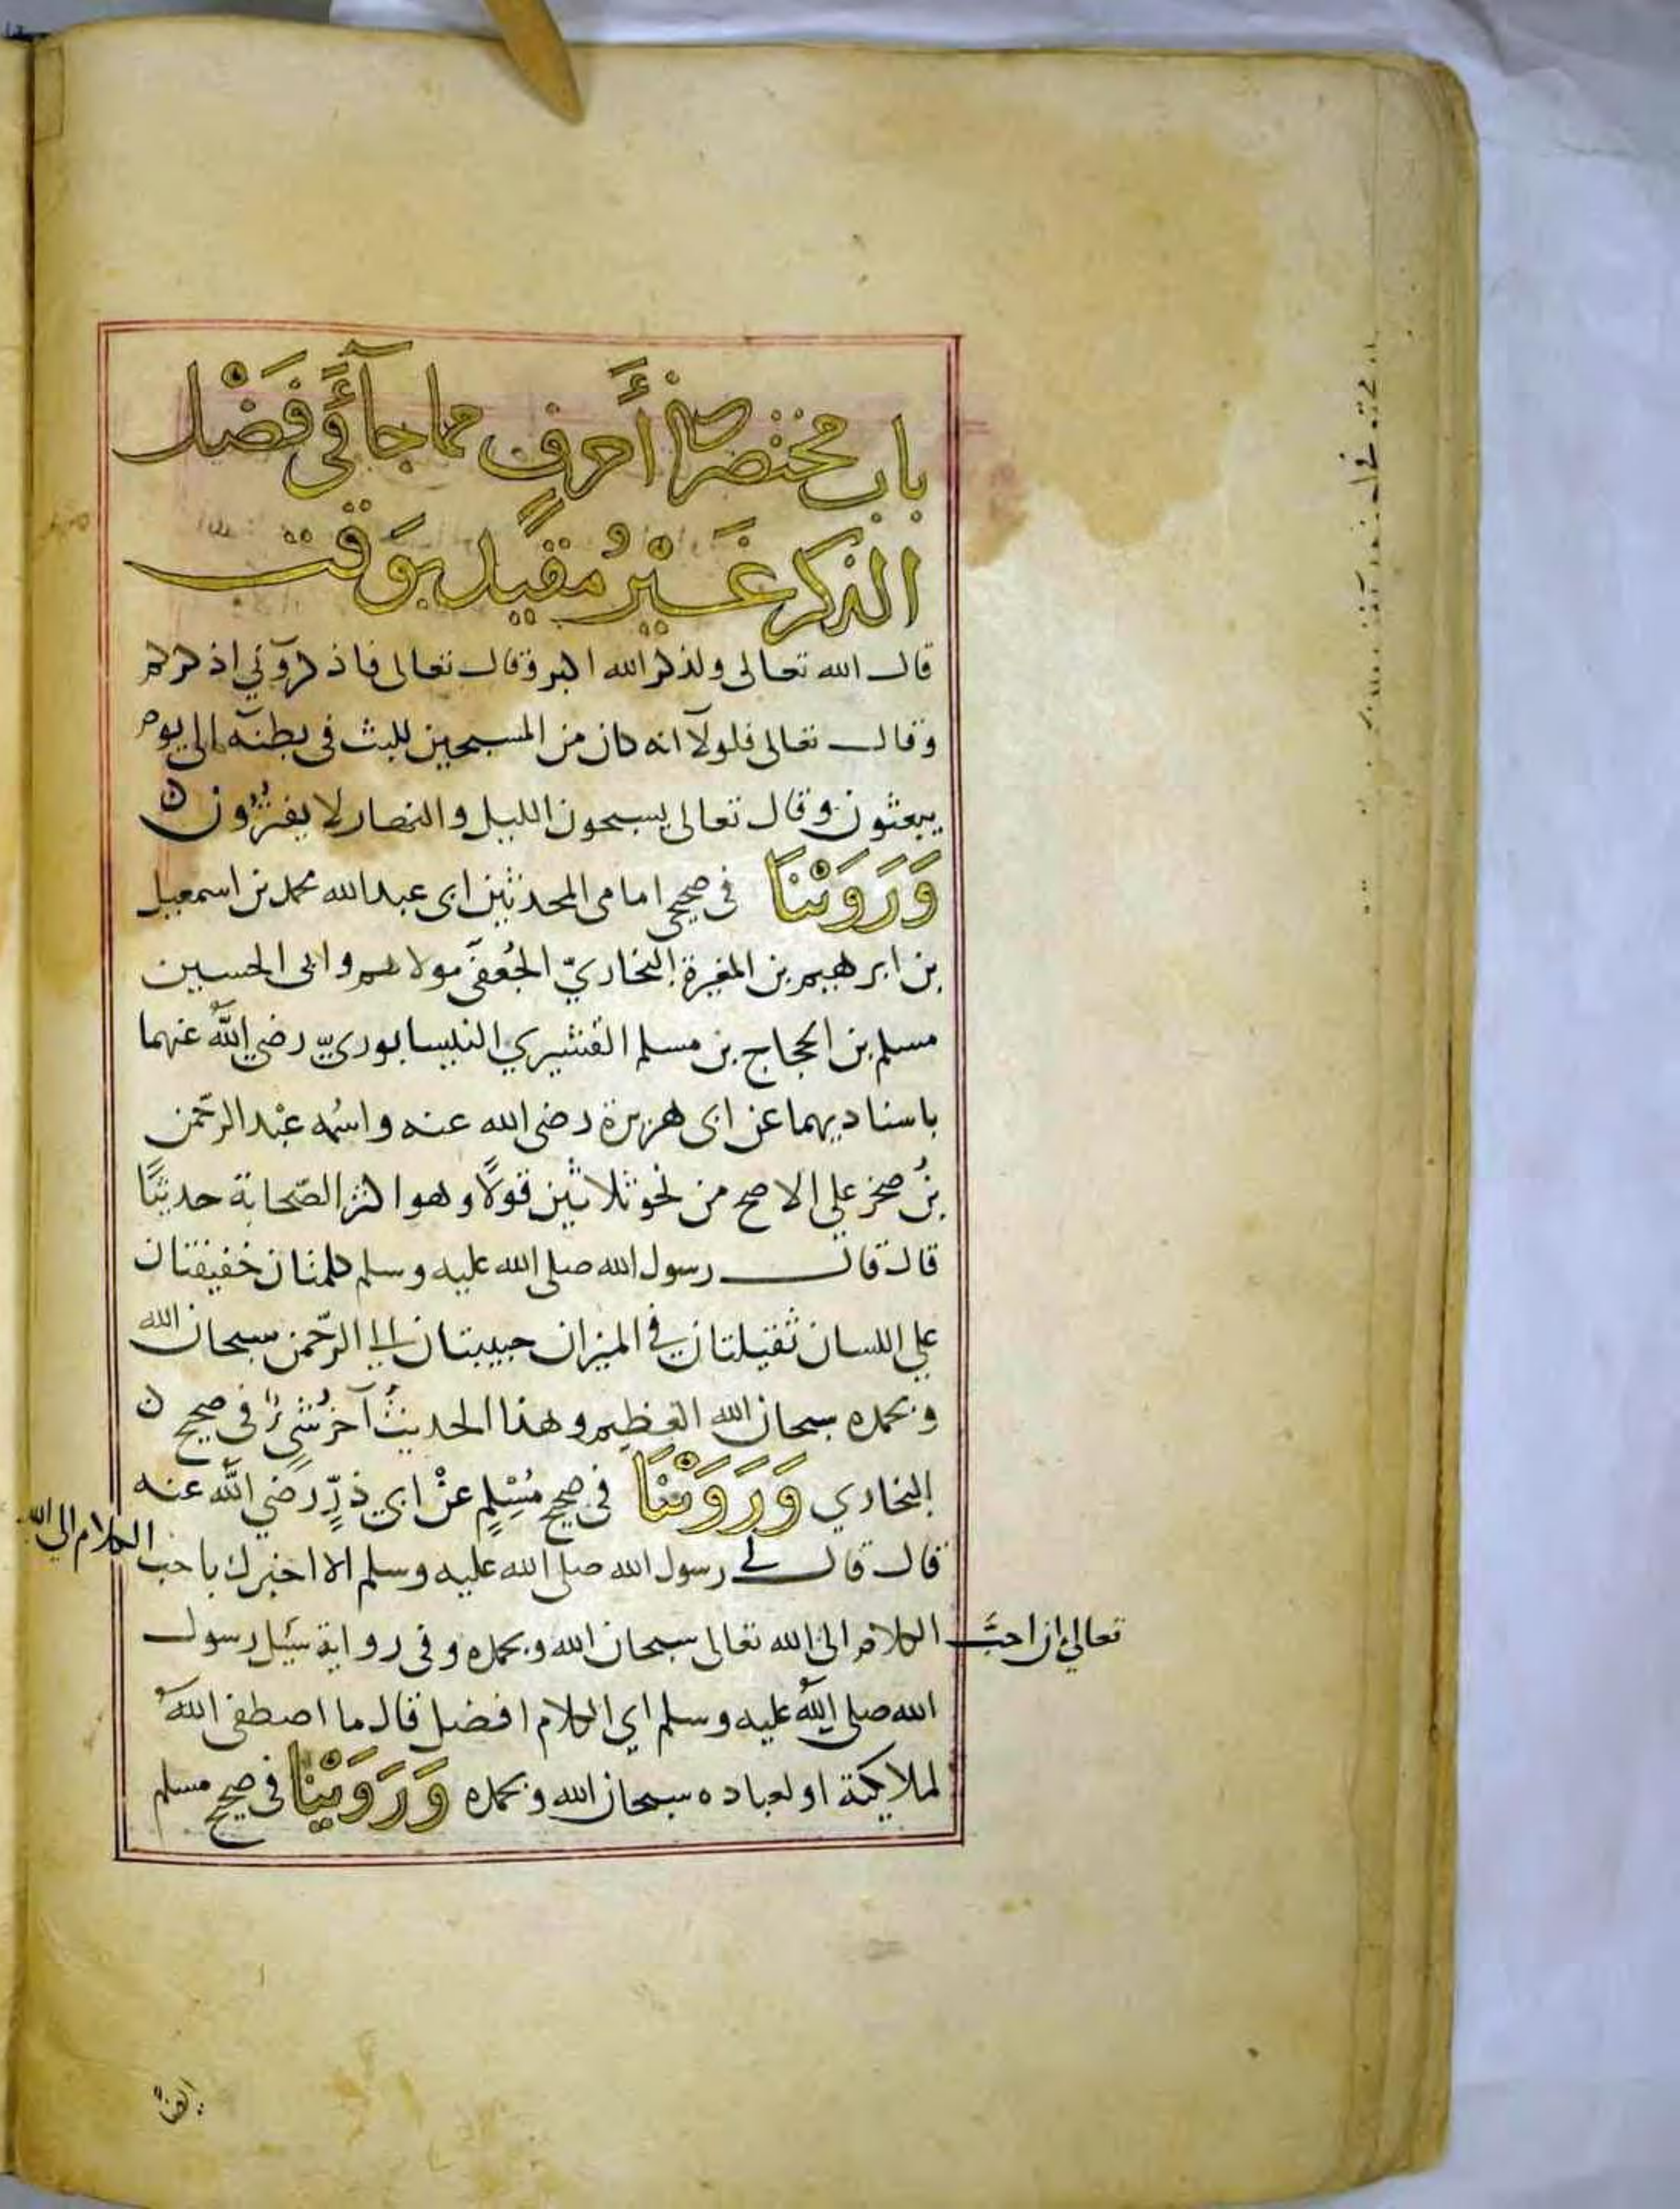 باب مختصر في أحرف مما جآء في فَضْل
الذكر غَيْر مُقيدٍ بوَقت
قال الله تعالى ولذكر الله اكبر وقال تعالى فاذكروني اذكركم
وقال تعالى فلولآ انه كان من المسبحين للبث في بطنه الى يوم
يبعثون وقال تعالى يسبحون الليل والنهار لا يفترُون
وَرَوَيْنَا في صحيحي امامي المحدثين ابى عبد الله محمد بن اسمعيل
بن ابرهيم بن المغيرة البخاريّ الجُعفي مولاهم وابى الحسين
مسلم بن الحجاج بن مسلم القشيري النيسابوريّ رضي الله عنهما
باسناديهما عن ابى هريرة رضى الله عنه واسمُه عبْد الرحّمن
بنُ صخر على الاصح من نحو ثلاثين قولاً وهو اكثر الصّحابة حديثًا
قال قال رسول الله صلى الله عليه وسلم كلمتان خفيفتان
على اللسان ثقيلتان في الميزان حبيبتان الى الرحّمن سبحان الله
وبحمده سبحان الله العظيم وهذا الحديثُ آخر شيءٍ في صحيح
البخاري وَرَوَيْنَا في صحيح مُسْلِمٍ عنْ ابي ذرٍّ رضي الله عنه
قال قال لي رسول الله صلى الله عليه وسلم الا اخبرك باحب الكلام الى الله
تعالى ان احبَّ الكلام الى الله تعالى سبحان الله وبحمده وفى رواية سُئِل رسول
الله صلى الله عليه وسلم اي الكلام افضل قال ما اصطفى الله
لملايكته او لعباده سبحان الله وبحمده وَرَوَيْنا في صحيح مسلم
ايضاً